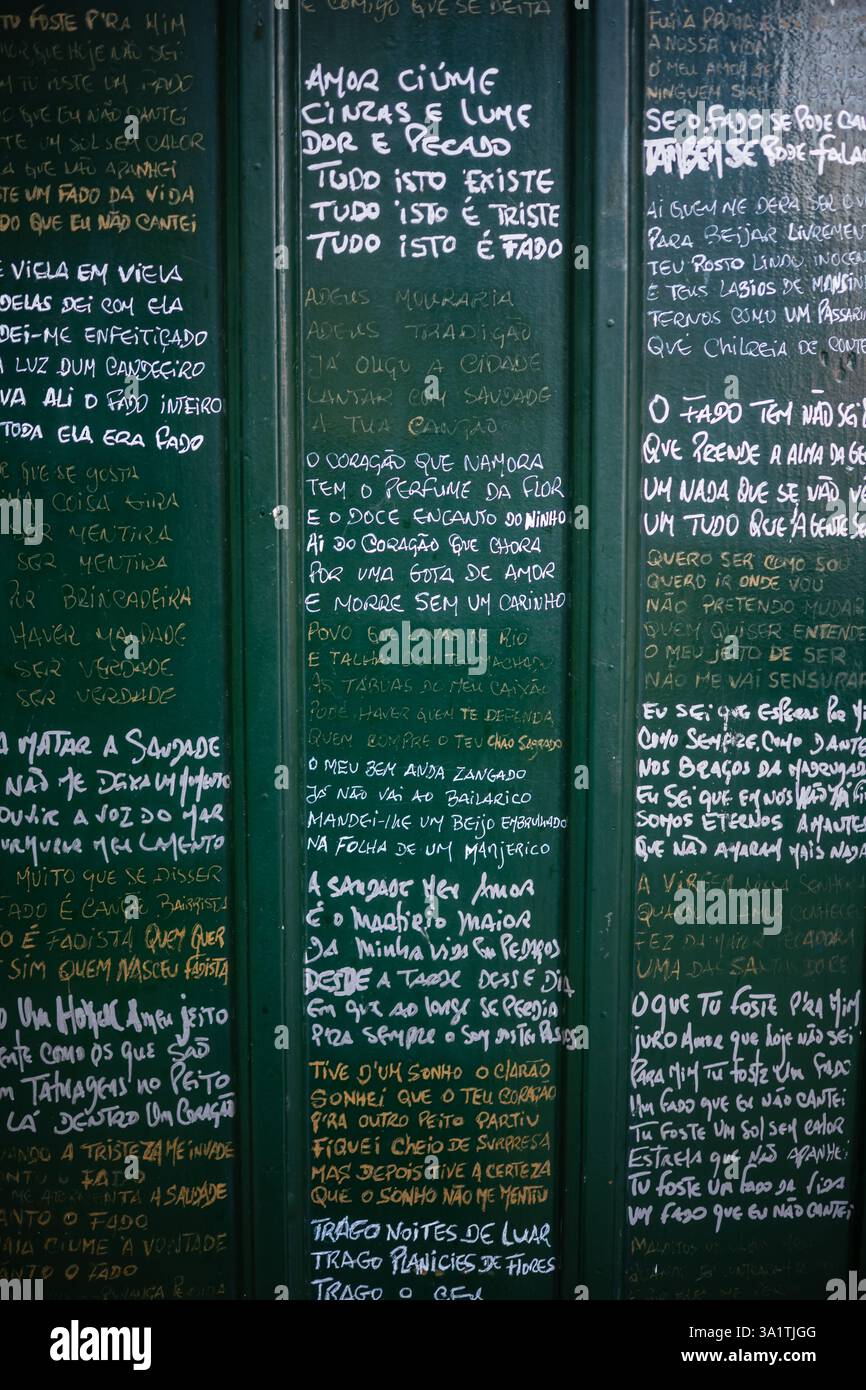 TU FOSTE P'RA MIM
QUE HOJE NÃO SEI
TU FOSTE UM FADO
QUE EU NÃO CANTEI
TE UM SOL SEM CALOR
QUE NÃO APANHEI
STE UM FADO DA VIDA
DO QUE EU NÃO CANTEI
E VIELA EM VIELA
DELAS DEI COM ELA
DEI-ME ENFEITIÇADO
A LUZ DUM CANDEEIRO
VA ALI O FADO INTEIRO
TODA ELA ERA FADO
QUE SE GOSTA
COISA GIRA
SER MENTIRA
SER MENTIRA
POR BRINCADEIRA
HAVER MALDADE
SER VERDADE
SER VERDADE
A MATAR A SAUDADE
NÃO ME DEIXA UM MOMENTO
OUVIR A VOZ DO MAR
URMURAR MEU LAMENTO
MUITO QUE SE DISSER
FADO É CANÇÃO BAIRRISTA
O É FADISTA QUEM QUER
SIM QUEM NASCEU FADISTA
O UM HOMEM A MEU JEITO
ENTE COMO OS QUE SÃO
M TATUAGENS NO PEITO
LÁ DENTRO UM CORAÇÃO
ANDO A TRISTEZA ME INVADE
NTO O FADO
ME ATORMENTA A SAUDADE
ANTO O FADO
CIUME À VONTADE
ANTO O FADO
E COMIGO QUE SE DEITA
AMOR CIÚME
CINZAS E LUME
DOR E PECADO
TUDO ISTO EXISTE
TUDO ISTO É TRISTE
TUDO ISTO É FADO
ADEUS MOURARIA
ADEUS TRADIÇÃO
JÁ OUÇO A CIDADE
CANTAR COM SAUDADE
A TUA CANÇÃO
O CORAÇÃO QUE NAMORA
TEM O PERFUME DA FLOR
E O DOCE ENCANTO DO NINHO
AI DO CORAÇÃO QUE CHORA
POR UMA GOTA DE AMOR
E MORRE SEM UM CARINHO
POVO QUE LAVAS NO RIO
E TALHAS COM TEU MACHADO
AS TÁBUAS DO MEU CAIXÃO
PODE HAVER QUEM TE DEFENDA
QUEM COMPRE O TEU CHÃO SAGRADO
O MEU BEM ANDA ZANGADO
JÁ NÃO VAI AO BAILARICO
MANDEI-LHE UM BEIJO EMBRULHADO
NA FOLHA DE UM MANJERICO
A SAUDADE MEU AMOR
É O MARTIRIO MAIOR
DA MINHA VIDA EM PEDAÇOS
DESDE A TARDE DESSE DIA
EM QUE AO LONGE SE PERDIA
P'RA SEMPRE O SOM DOS TEUS PASSOS
TIVE D'UM SONHO O CLARÃO
SONHEI QUE O TEU CORAÇÃO
P'RA OUTRO PEITO PARTIU
FIQUEI CHEIO DE SURPRESA
MAS DEPOIS TIVE A CERTEZA
QUE O SONHO NÃO ME MENTIU
TRAGO NOITES DE LUAR
TRAGO PLANICIES DE FLORES
TRAGO O CEU
FUI A PRAIA
A NOSSA VIDA
O MEU AMOR SE
NINGUEM
SE O FADO SE PODE CAN
TAMBEM SE PODE FALA
AI QUEM ME DERA SER
PARA BEIJAR LIVREMEN
TEU ROSTO LINDO INOCEN
E TEUS LABIOS DE MANSIN
TERNOS COMO UM PASSARI
QUE CHILREIA DE CONTE
O FADO TEM NÃO SEI
QUE PRENDE A ALMA DA GE
UM NADA QUE SE NÃO VÊ
UM TUDO QUE A GENTE SE
QUERO SER COMO SOU
QUERO IR ONDE VOU
NÃO PRETENDO MUDAR
QUEM QUISER ENTENDE
O MEU JEITO DE SER
NÃO ME VAI SENSURAR
EU SEI QUE ESPERAS POR MI
COMO SEMPRE, COMO DANTE
NOS BRAÇOS DA MADRUGAD
EU SEI QUE EM NOS NÃO HÁ
SOMOS ETERNOS AMANTE
QUE NÃO AMARAM MAIS NADA
A VIRGEM NOSSA SENHOR
QUANDO O AMOR CONHECE
FEZ DA MAIOR PECADORA
UMA DAS SANTAS DO CÉ
O QUE TU FOSTE P'RA MIM
JURO AMOR QUE HOJE NÃO SEI
PARA MIM TU FOSTE UM FADO
UM FADO QUE EU NÃO CANTEI
TU FOSTE UM SOL SEM CALOR
ESTRELA QUE NÃO APANHEI
TU FOSTE UM FADO DA VIDA
UM FADO QUE EU NÃO CANTEI
alamy
Image ID: 3A1TJGG
www.alamy.com